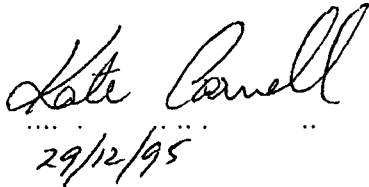 Kate Carnell
29/12/95